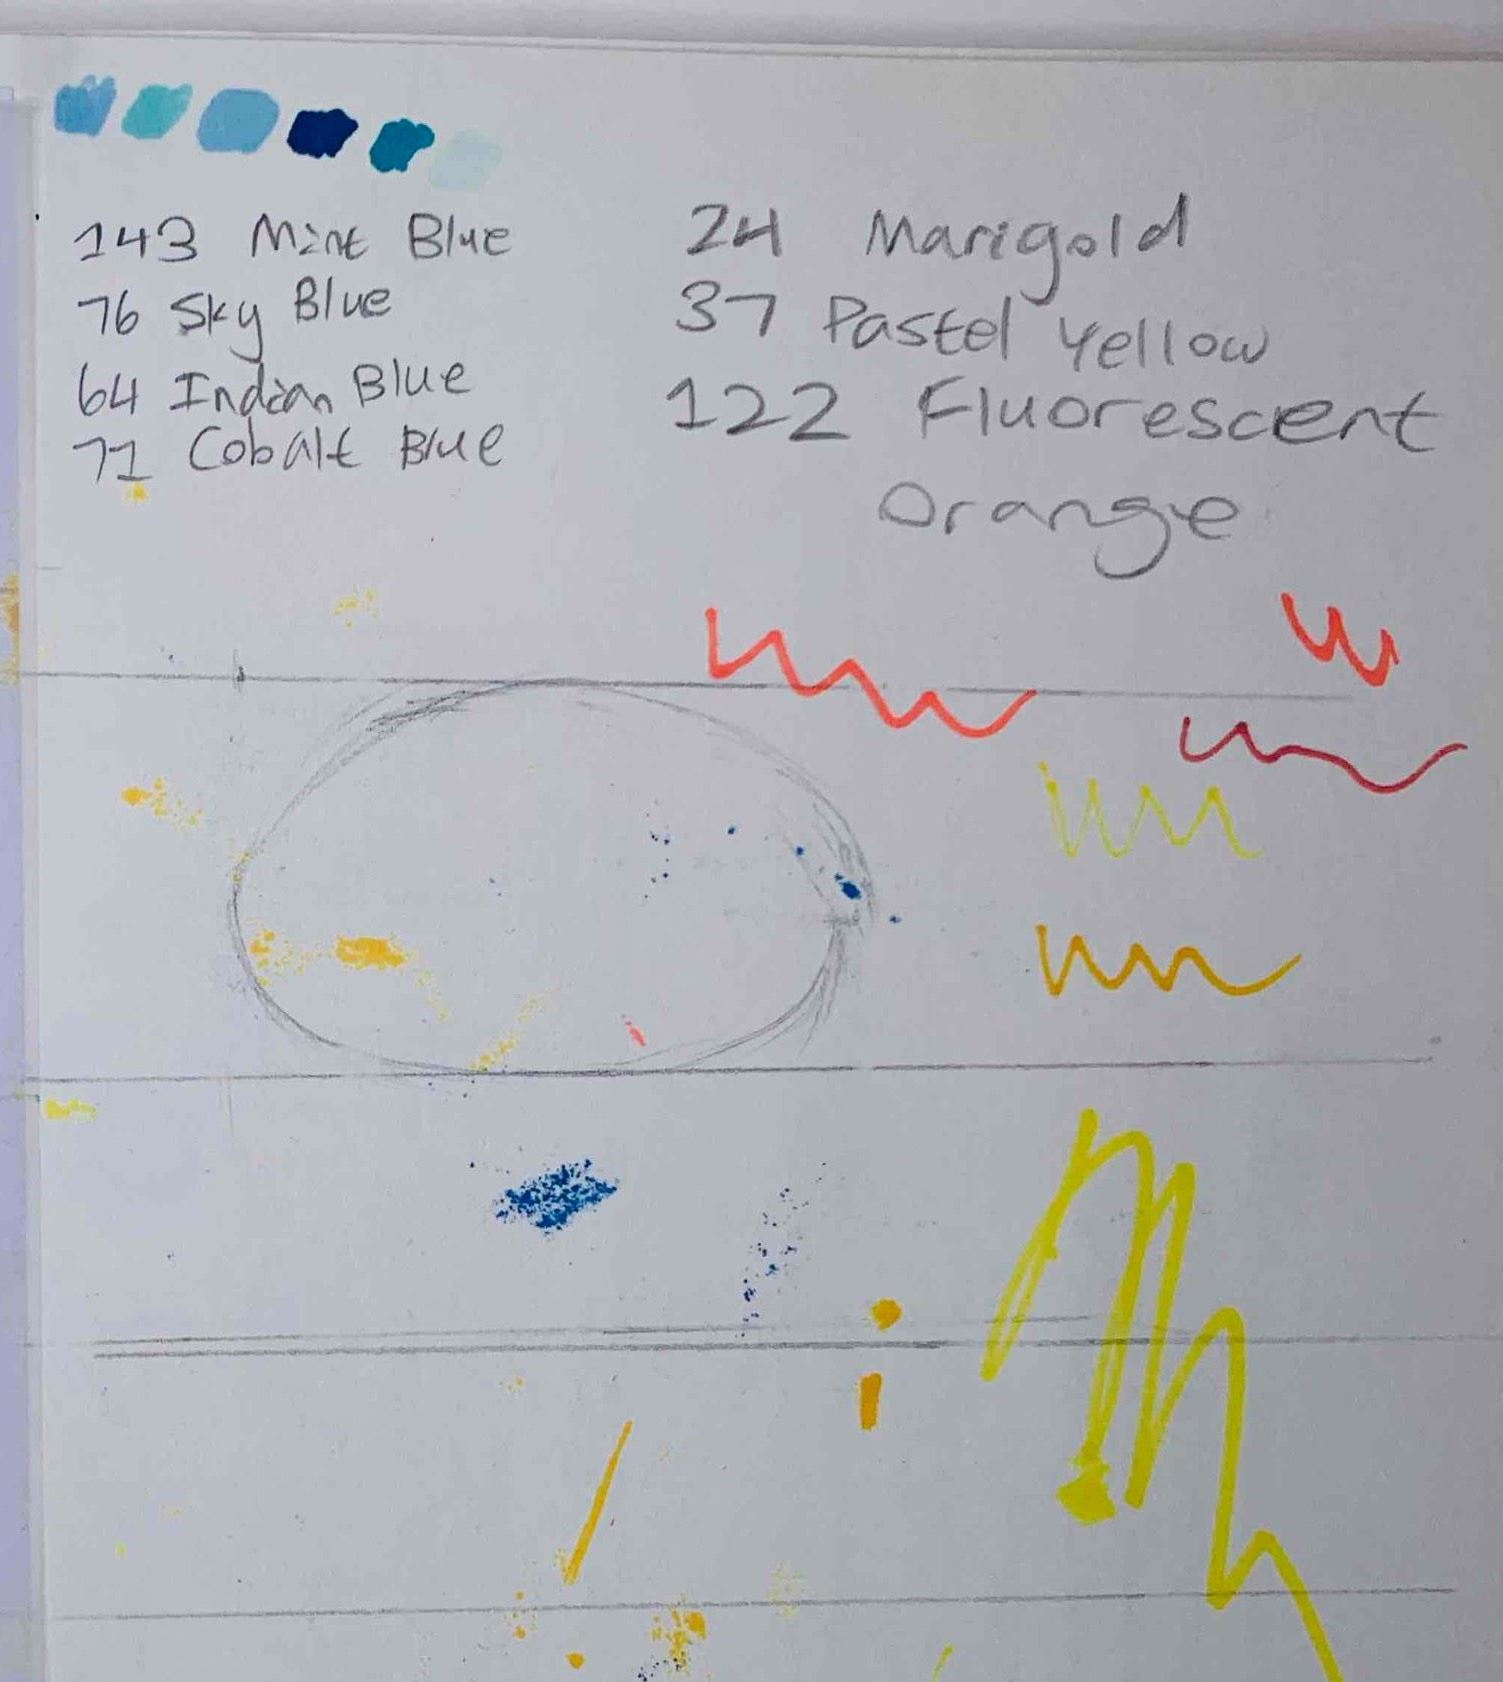 143 Mint Blue
76 Sky Blue
64 Indian Blue
71 Cobalt Blue
24 Marigold
37 Pastel Yellow
122 Fluorescent
Orange